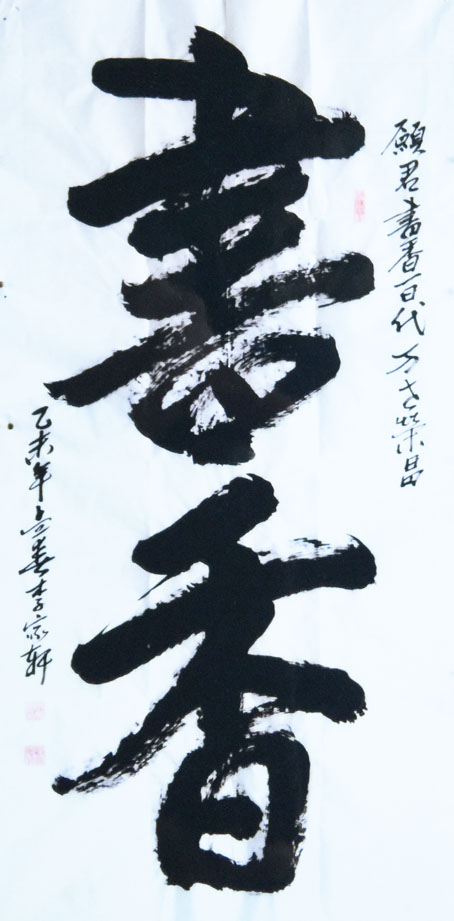 願君書香百代万世榮昌
書香
乙未年春李家軒